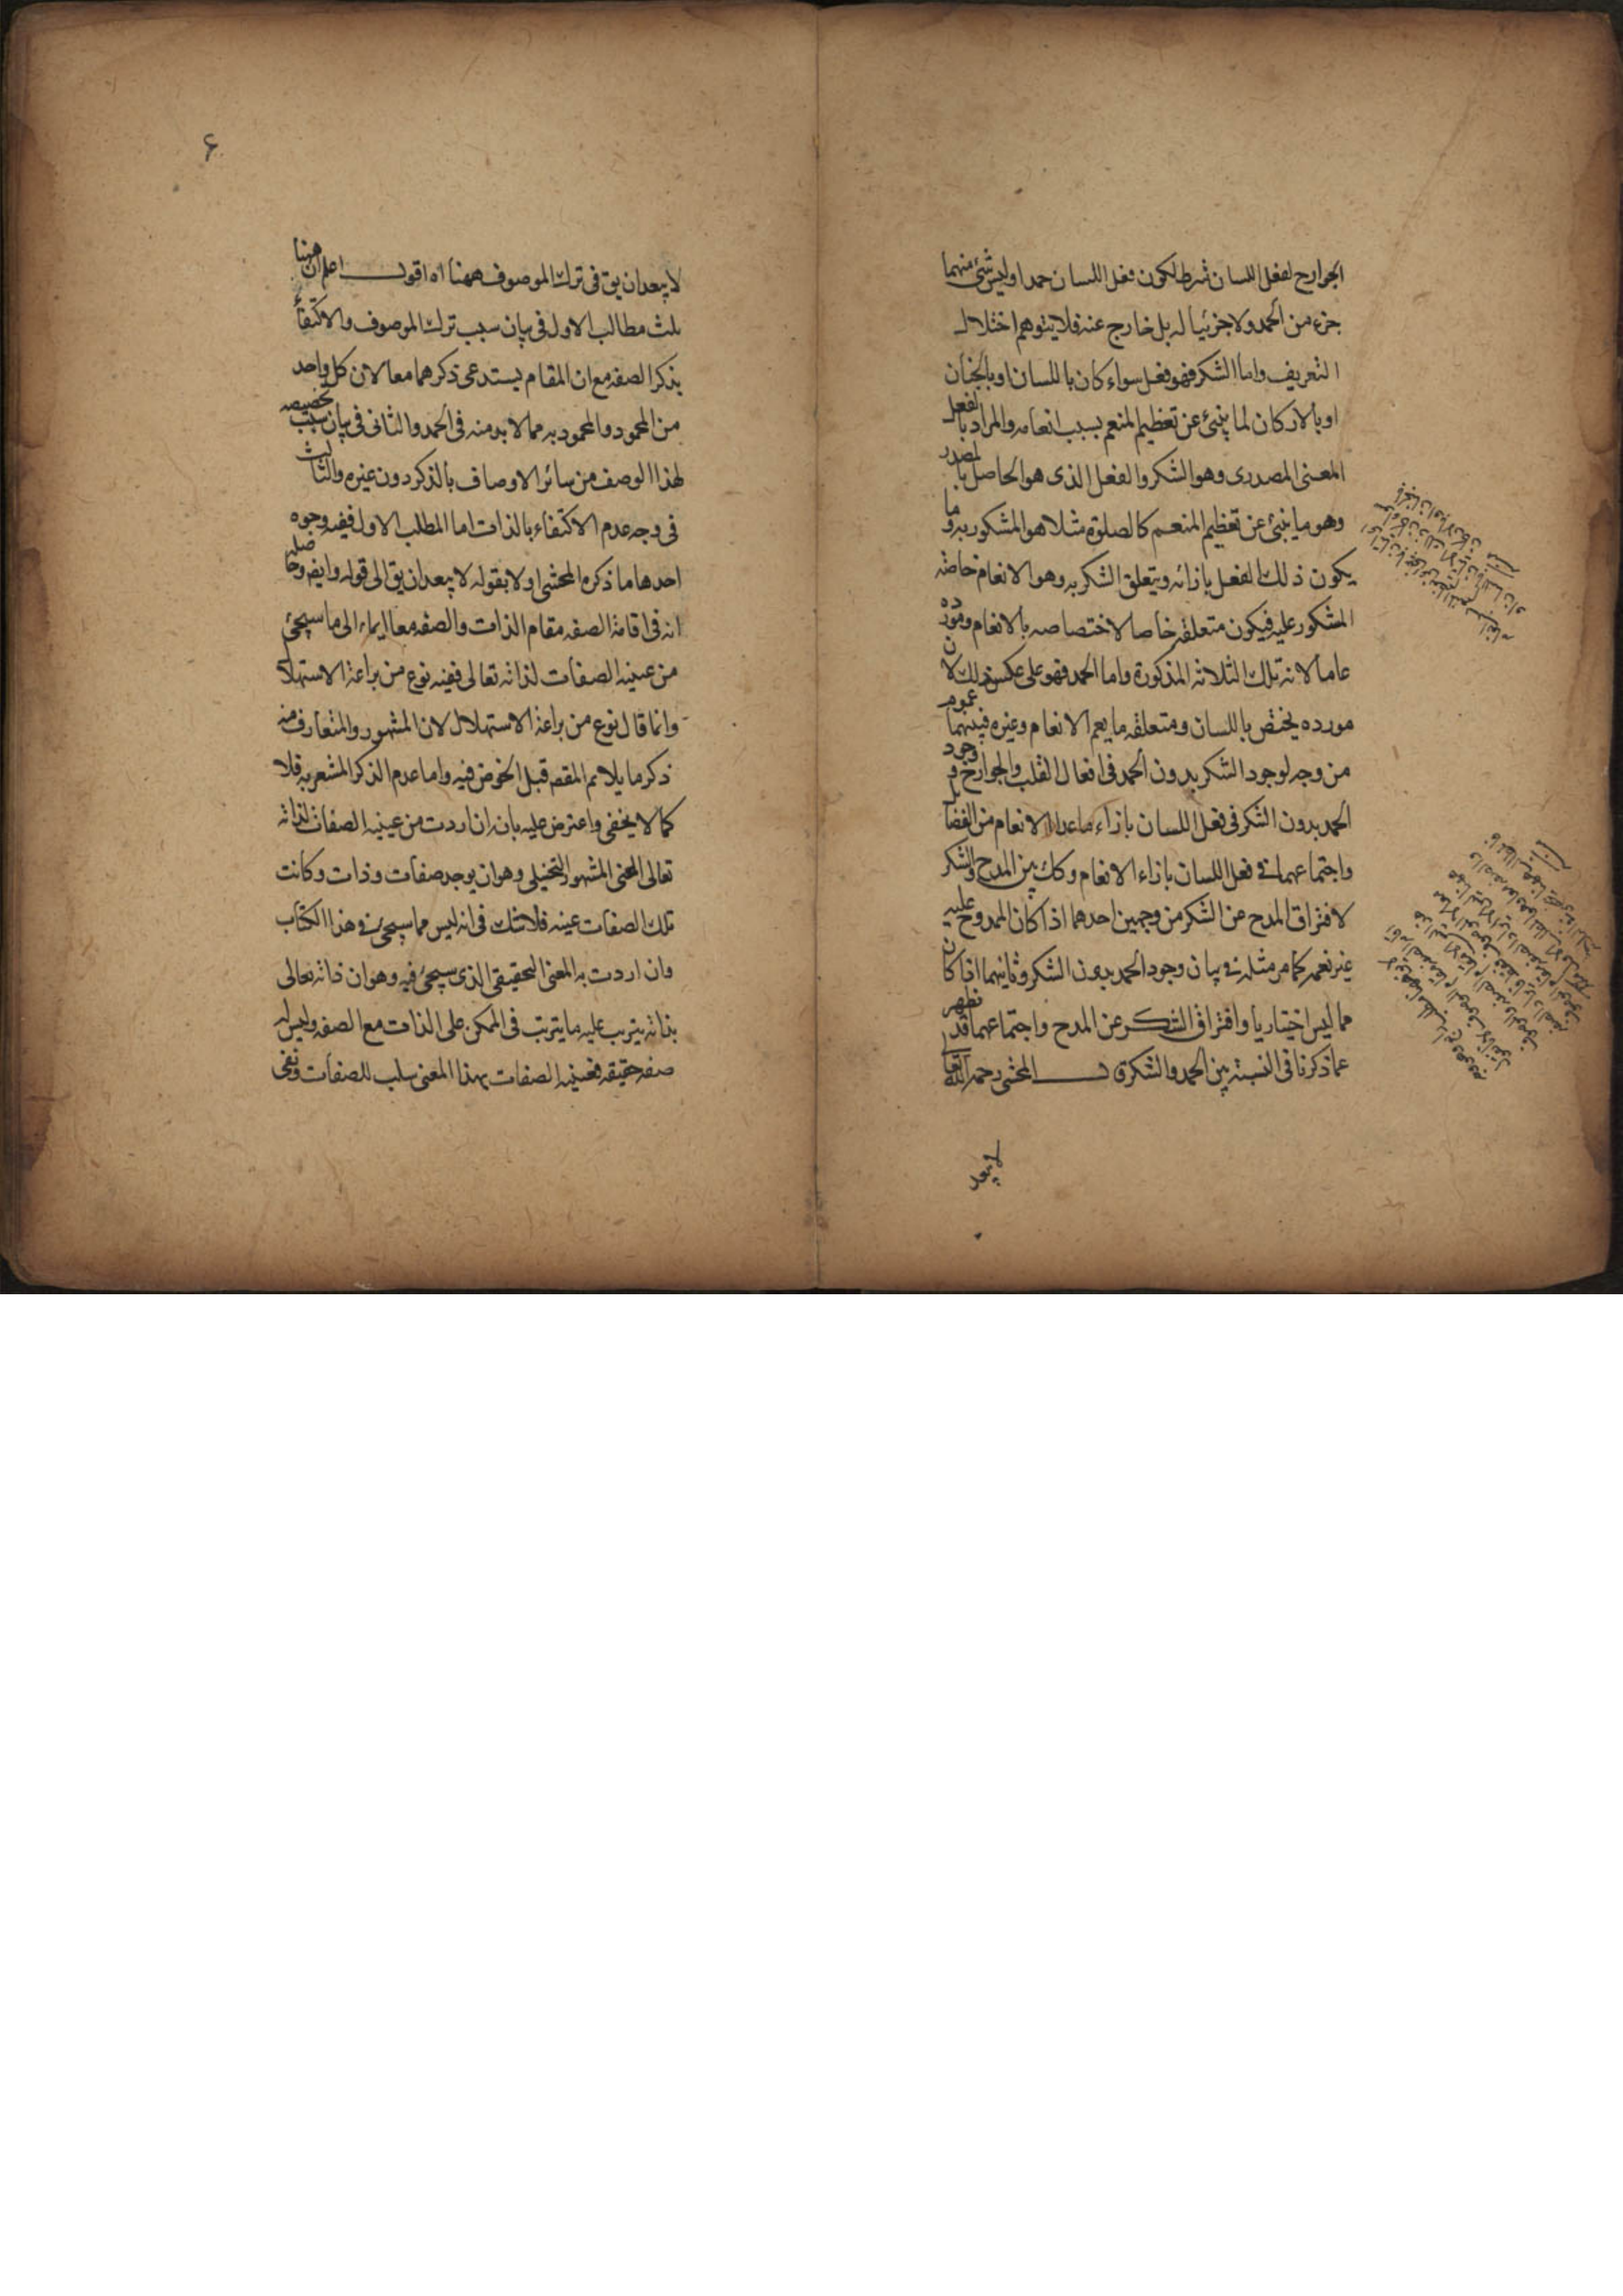 الجوارح لفعل اللسان شرط لكون فعل اللسان حمدا وليس شئ منهما
جزء من الحمد ولا جزئيا له بل خارج عنه فلا يتوهم اختلال
التعريف واما الشكر فهو فعل سواء كان باللسان او بالجنان
او بالاركان لما ينبئ عن تعظيم المنعم بسبب انعامه والمراد بالفعل
المعنى المصدرى وهو الشكر والفعل الذى هو الحاصل بالمصدر
وهو ما ينبئ عن تعظيم المنعم كالصلوة مثلا هو المشكور به وما
يكون ذلك الفعل بازائه ويتعلق الشكر به وهو الانعام خاصة
المشكور عليه فيكون متعلقه خاصا لاختصاصه بالانعام ومورده
عاما لانه تلك الثلاثه المذكورة واما الحمد فهو على عكس ذلك لان
مورده يختص باللسان ومتعلقه ما يعم الانعام وغيره فبينهما عموم
من وجه لوجود الشكر بدون الحمد فى افعال القلب والجوارح ووجود
الحمد بدون الشكر فى فعل اللسان بازاء ماعدا الانعام من الفضائل
واجتماعهما فى فعل اللسان بازاء الانعام وكك بين المدح والشكر
لافتراق المدح عن الشكر من وجهين احدهما اذا كان الممدوح عليه
غير نعمه كما مر مثله فى بيان وجود الحمد بدون الشكر وثانيهما اذا كان
مما ليس اختياريا وافتراق الشكر عن المدح واجتماعهما قد تظهر
عما ذكرنا فى النسبة بين الحمد والشكر ق‍ـــال المحشى رحمه الله تعالى
لا يبعد
۶
لا يبعد ان يق فى ترك الموصوف ههنا اه اقول اعلم ان ههنا
ثلث مطالب الاول فى بيان سبب ترك الموصوف والاكتفاء
بذكر الصفه مع ان المقام يستدعى ذكرهما معا لان كل واحد
من المحمود والمحمود به مما لا بد منه فى الحمد والثانى فى بيان سبب تخصيصه
لهذا الوصف من سائر الاوصاف بالذكر دون غيره والثالث
فى وجه عدم الاكتفاء بالذات اما المطلب الاول ففيه وجوه
احدها ما ذكره المحشى اولا بقوله لا يبعد ان يق الى قوله وايضه وحاصله
انه فى اقامة الصفه مقام الذات والصفه معا ايماء الى ما سيجئ
من عينيه الصفات لذاته تعالى ففيه نوع من براعة الاستهلال
وانما قال نوع من براعة الاستهلال لان المشهور والمتعارف منه
ذكر ما يلائم المقصد قبل الخوض فيه واما عدم الذكر المشعر به فلا
كما لا يخفى واعترض عليه بانه ان اردت من عينيه الصفات لذاته
تعالى المعنى المشهور التخيلى وهو ان يوجد صفات وذات وكانت
تلك الصفات عينه فلا شك فى انه ليس مما سيجئ فى هذا الكتاب
وان اردت به المعنى التحقيقى الذى سيجئ فيه وهو ان ذاته تعالى
بذاته يترتب عليه ما يترتب فى الممكن على الذات مع الصفه وليس له
صفه حقيقه فعينيه الصفات بهذا المعنى سلب للصفات ونفى